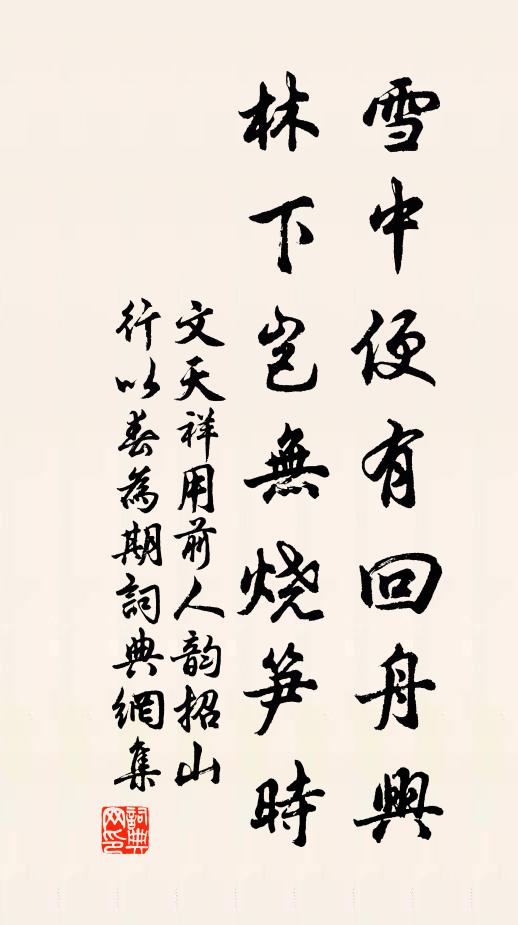 雪中便有回舟興
林下豈無烧笋時
文天祥用前人韵招山
行以春為期詞典網集
詞典网印